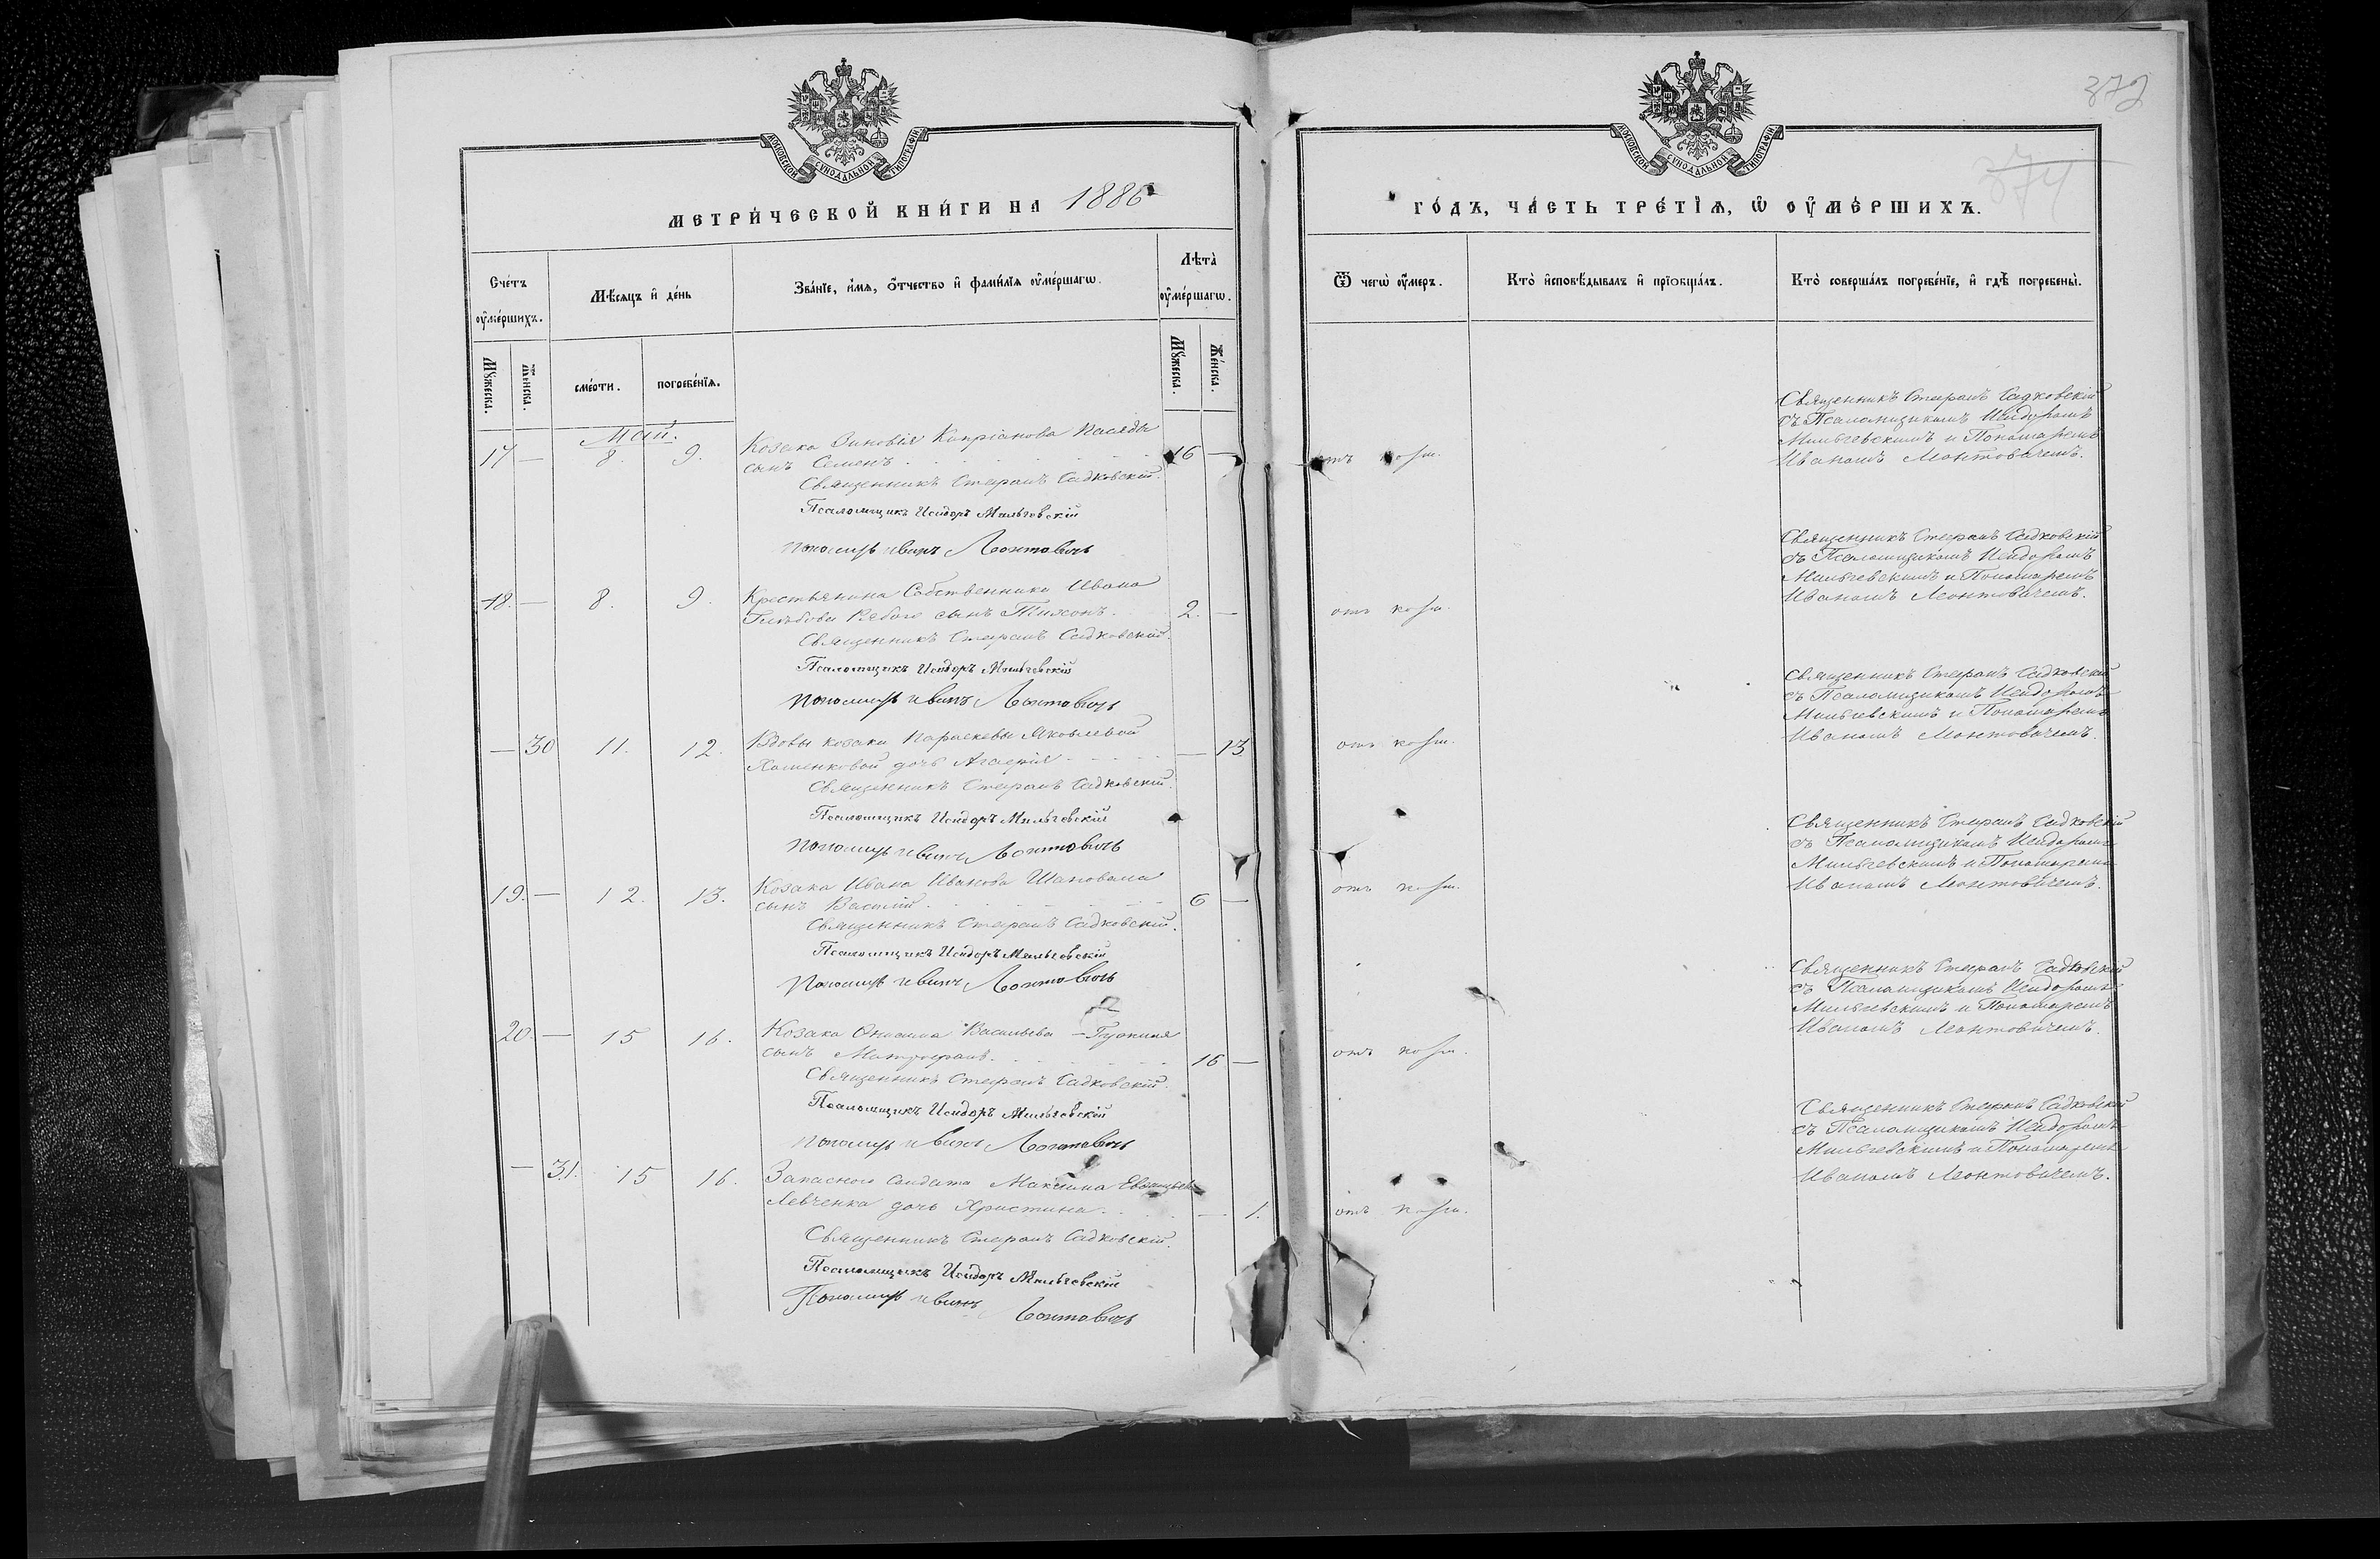 372
374
МОСКОВСКОЙ СУНОДАЛЬНОЙ ТИПОГРАФІИ
МОСКОВСКОЙ СУНОДАЛЬНОЙ ТИПОГРАФІИ
МЕТРИ́ЧЕСКОЙ КНИ́ГИ НА 1886
ГО́ДЪ, ЧА́СТЬ ТРЕ́ТІѦ, Ѡ ОУ҆МЕ́РШИХЪ.
Сче́тъ оу҆ме́ршихъ.
Мѣ́сяцъ и҆ де́нь
Зва́нїе, и҆́мя, ѻ҆́тчество и҆ фами́лїя оу҆ме́ршагѡ.
Лѣта̀ оу҆ме́ршагѡ.
Ѿ чегѡ̀ оу҆́меръ.
Кто̀ и҆сповѣ́дывалъ и҆ прїѡбща́лъ.
Кто̀ соверша́лъ погребе́нїе, и҆ гдѣ̀ погребены̀.
Мꙋ́жеска.
Же́нска.
сме́рти.
погребе́нїя.
Мꙋ́жеска.
Же́нска.
Май.
17 — 8. 9. Козака Зиновія Кипріанова
сынъ Семенъ. 16 — отъ кори.
Священникъ Стефанъ Садковскій.
Псаломщикъ Исидоръ Мильгевскій
Пономарь Иванъ Леонтовичъ
Священникъ Стефанъ Садковскій
съ Псаломщикомъ Исидоромъ
Мильгевскимъ и Пономаремъ
Иваномъ Леонтовичемъ.
18. — 8. 9. Крестьянина Собственника Ивана
Глѣбова Рябого сынъ Тихонъ. 2. — отъ кори.
Священникъ Стефанъ Садковскій.
Псаломщикъ Исидоръ Мильгевскій
Пономарь Иванъ Леонтовичъ
Священникъ Стефанъ Садковскій
съ Псаломщикомъ Исидоромъ
Мильгевскимъ и Пономаремъ
Иваномъ Леонтовичемъ.
— 30 11. 12. Вдовы козачки Параскевы Яковлевой
дочь Агафія — 13 отъ кори.
Священникъ Стефанъ Садковскій.
Псаломщикъ Исидоръ Мильгевскій
Пономарь Иванъ Леонтовичъ
Священникъ Стефанъ Садковскій
съ Псаломщикомъ Исидоромъ
Мильгевскимъ и Пономаремъ
Иваномъ Леонтовичемъ.
19. — 12. 13. Козака Ивана Иванова Шаповала
сынъ Василій. 6 — отъ кори.
Священникъ Стефанъ Садковскій.
Псаломщикъ Исидоръ Мильгевскій
Пономарь Иванъ Леонтовичъ
Священникъ Стефанъ Садковскій
съ Псаломщикомъ Исидоромъ
Мильгевскимъ и Пономаремъ
Иваномъ Леонтовичемъ.
20. — 15 16. Козака Онисима Васильева
сынъ Митрофанъ. 16 — отъ кори.
Священникъ Стефанъ Садковскій.
Псаломщикъ Исидоръ Мильгевскій
Пономарь Иванъ Леонтовичъ
Священникъ Стефанъ Садковскій
съ Псаломщикомъ Исидоромъ
Мильгевскимъ и Пономаремъ
Иваномъ Леонтовичемъ.
— 31. 15 16. Запасного Солдата Максима
Левченка дочь Христина. — 1. отъ кори.
Священникъ Стефанъ Садковскій.
Псаломщикъ Исидоръ Мильгевскій
Пономарь Иванъ
Леонтовичъ
Священникъ Стефанъ Садковскій
съ Псаломщикомъ Исидоромъ
Мильгевскимъ и Пономаремъ
Иваномъ Леонтовичемъ.